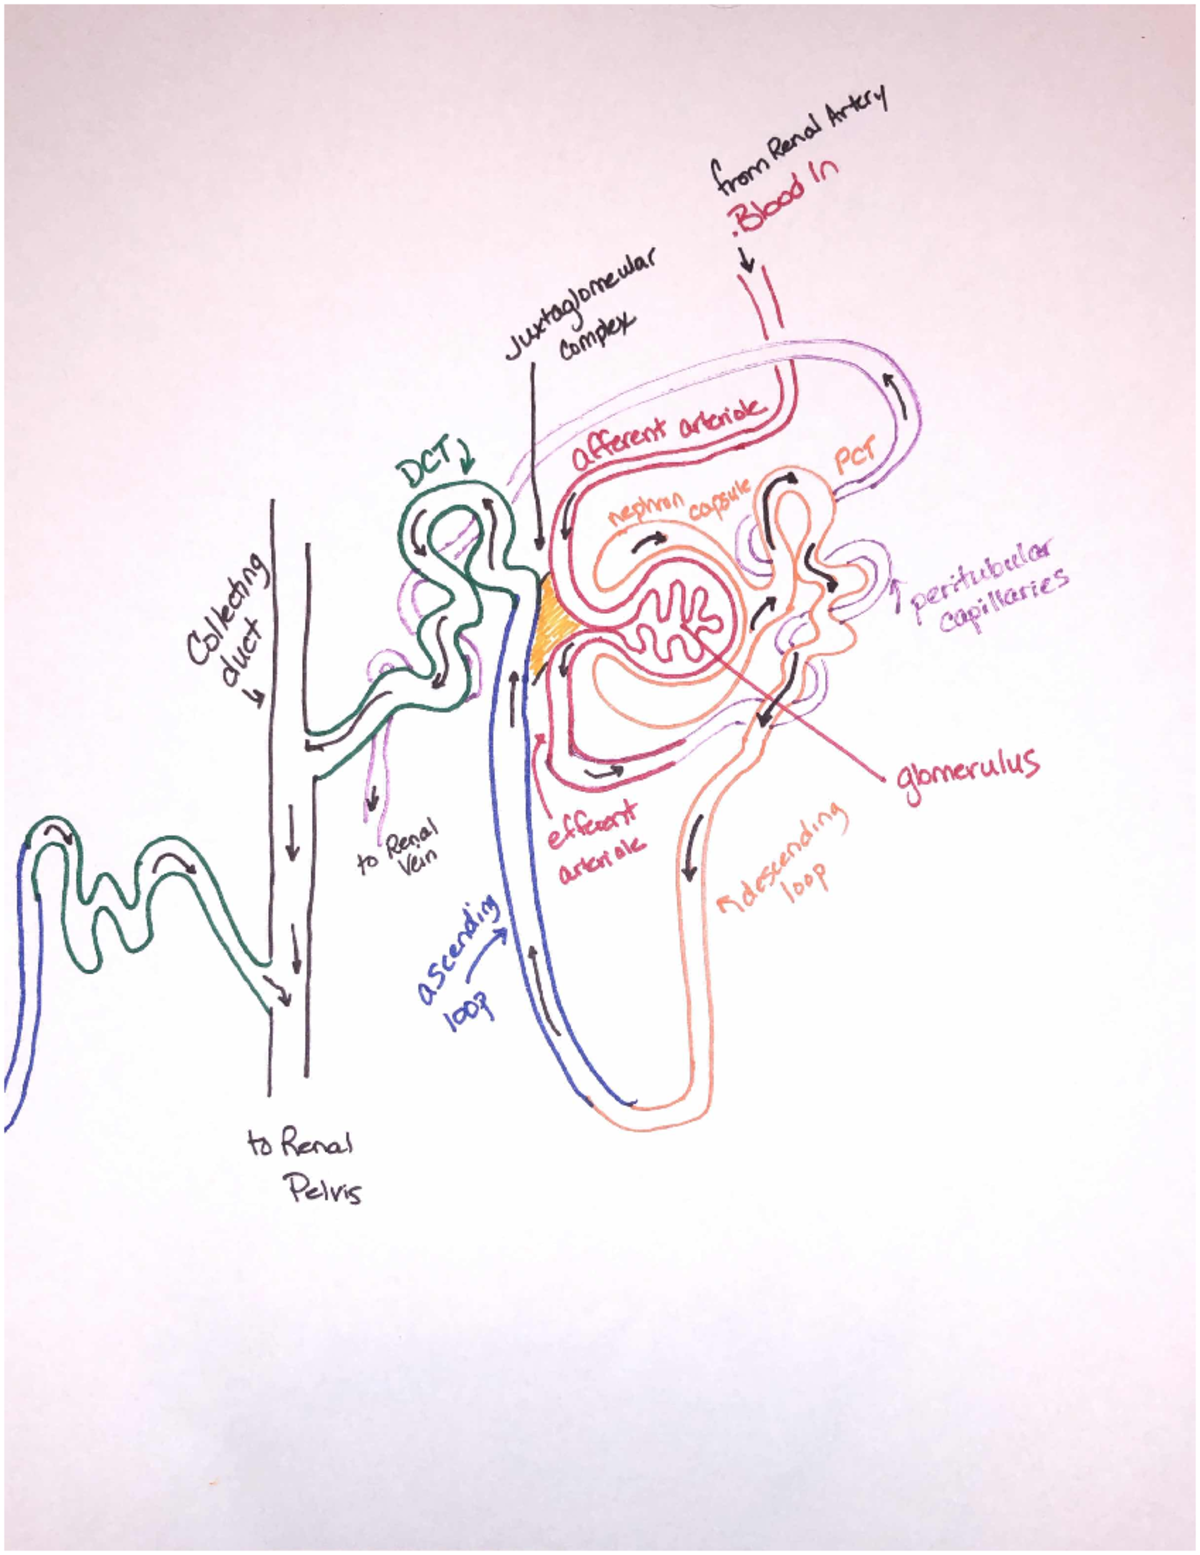 from Renal Artery
.Blood In
Juxtaglomeular
complex
afferent arteriole
DCT
PCT
nephron capsule
Collecting
duct
peritubular
capillaries
glomerulus
to Renal
Vein
efferent
arteriole
descending
loop
ascending
loop
to Renal
Pelvis